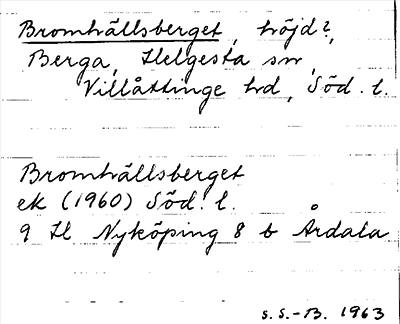 Bromhällsberget, höjd?,
Berga, Helgesta sn,
Villåttinge hd, Söd. l.
Bromhällsberget
ek (1960) Söd. l.
9 H Nyköping 8 b Årdala
S.S.-B. 1963